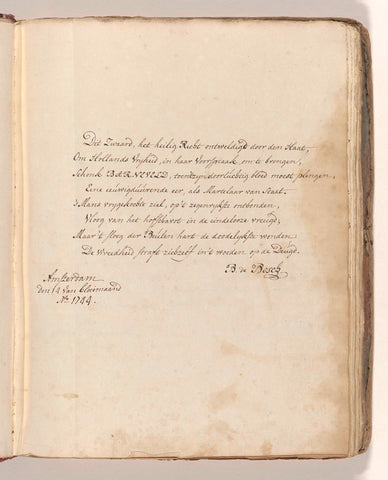 Dit Zwaard, het heilig Recht ontweldigd door den Haat,
Om Hollands Vryheid, in haar Voorspraak om te brengen,
Schonk BARNEVELD, toen't zyn doorluchtig bloed moest plengen,
Eene eeuwigduurende eer, als Martelaar van Staat.
's Mans vrygevochte ziel, op't zegenrykste ontbonden,
Vloog van het hofschavot in de eindelooze vreugd;
Maar 't sloeg der Beulen hart de doodelykste wonden
De Wreedheid straft zichzelf in't woeden op de Deugd.
B. de Bosch
Amsterdam
den 14 van Bloeimaand
No. 1744.